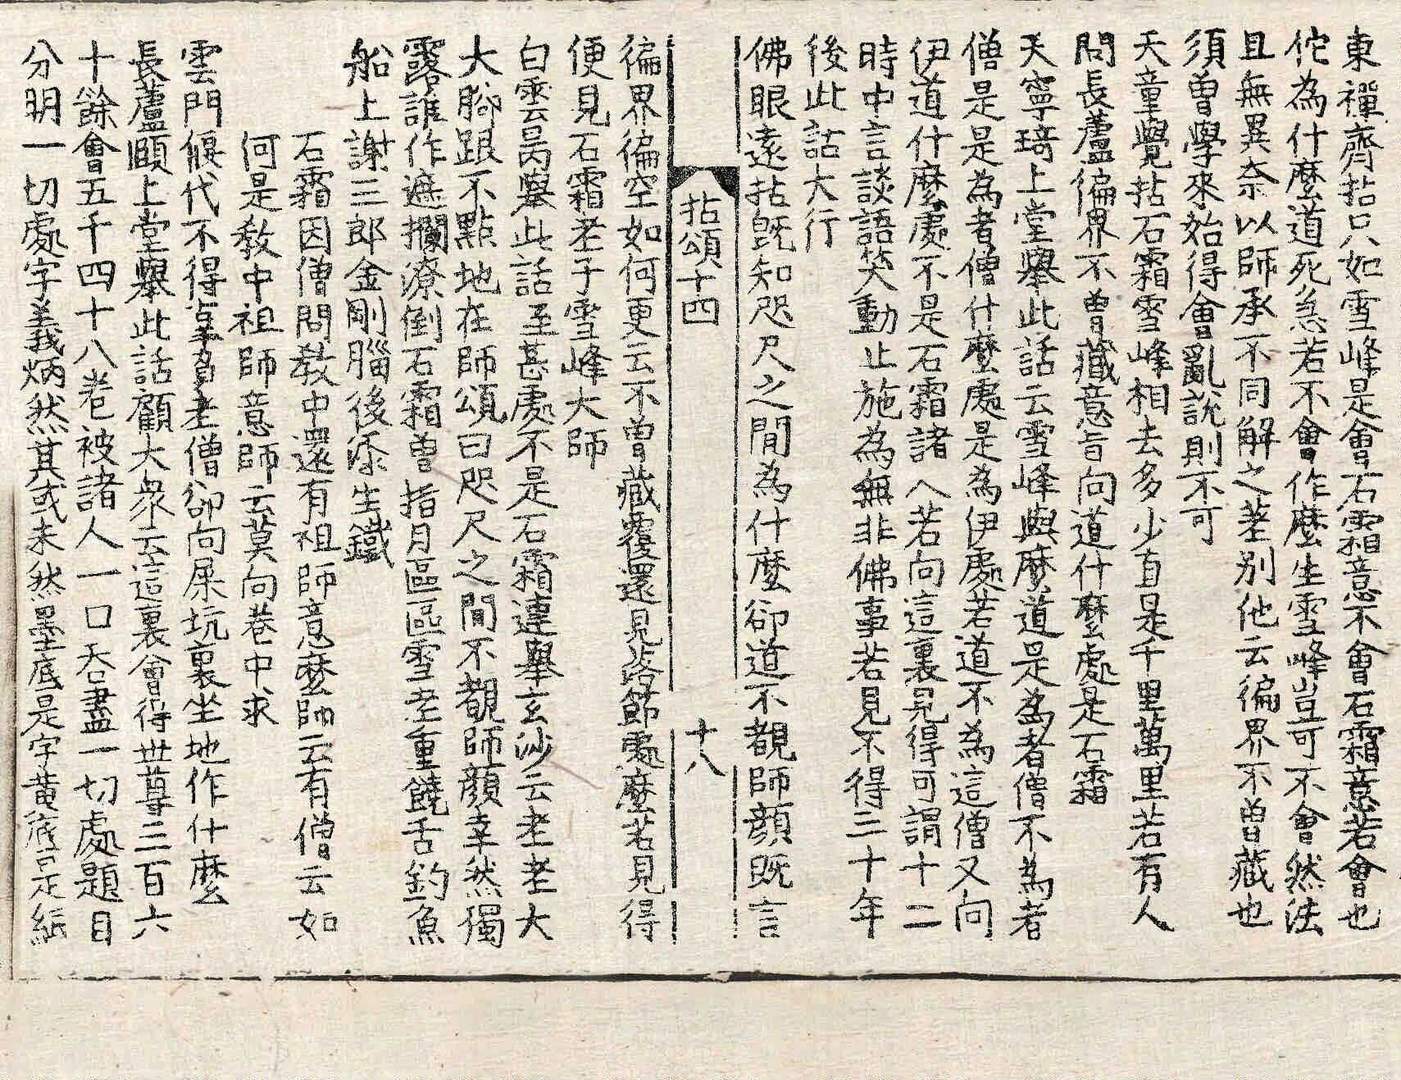 東禪齊拈只如雪峰是會石霜意不會石霜意若會也
佗為什麼道死急若不會作麼生雪峰豈可不會然法
且無異奈以師承不同解之差别他云徧界不曾藏也
須曾學來始得會亂說則不可
天童覺拈石霜雪峰相去多少直是千里萬里若有人
問長蘆徧界不曾藏意旨向道什麼處是石霜
天寧琦上堂舉此話云雪峰與麼道是為者僧不為者
僧是是為者僧什麼處是為伊處若道不為這僧又向
伊道什麼處不是石霜諸人若向這裏見得可謂十二
時中言談語笑動止施為無非佛事若見不得三十年
後此話大行
佛眼遠拈既知咫尺之間為什麼卻道不覩師顔既言
拈頌十四 十八
徧界徧空如何更云不曾藏覆還見落節處麼若見得
便見石霜老子雪峰大師
白雲昺舉此話至甚處不是石霜連舉玄沙云老老大
大腳跟不點地在師頌曰咫尺之間不覩師顔幸然獨
露誰作遮攔潦倒石霜曾指月區區雪老重饒舌釣魚
船上謝三郎金剛腦後添生鐵
石霜因僧問教中還有祖師意麼師云有僧云如
何是教中祖師意師云莫向卷中求
雲門偃代不得辜負老僧卻向屎坑裏坐地作什麼
長蘆賾上堂舉此話顧大衆云這裏會得世尊三百六
十餘會五千四十八卷被諸人一口吞盡一切處題目
分明一切處字義炳然其或未然墨底是字黃底是紙